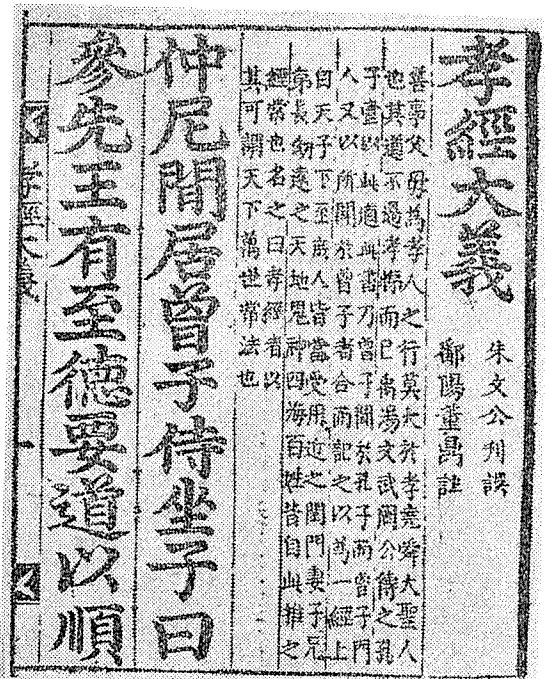 孝經大義
朱文公刊誤
鄱陽董鼎註
善事父母為孝人之行莫大於孝堯舜大聖人
也其道不過孝悌而已禹湯文武周公傳之孔
子以此道此書乃曾子聞於孔子而曾子門
人又以所聞於曾子者合而記之以為一經上
自天子下至庶人皆當受用近之閨門妻子兄
弟長幼遠之天地鬼神四海百姓皆自此推之
經常也名之曰孝經者以
其可謂天下萬世常法也
仲尼間居曾子侍坐子曰
參先王有至德要道以順
孝經大義
一